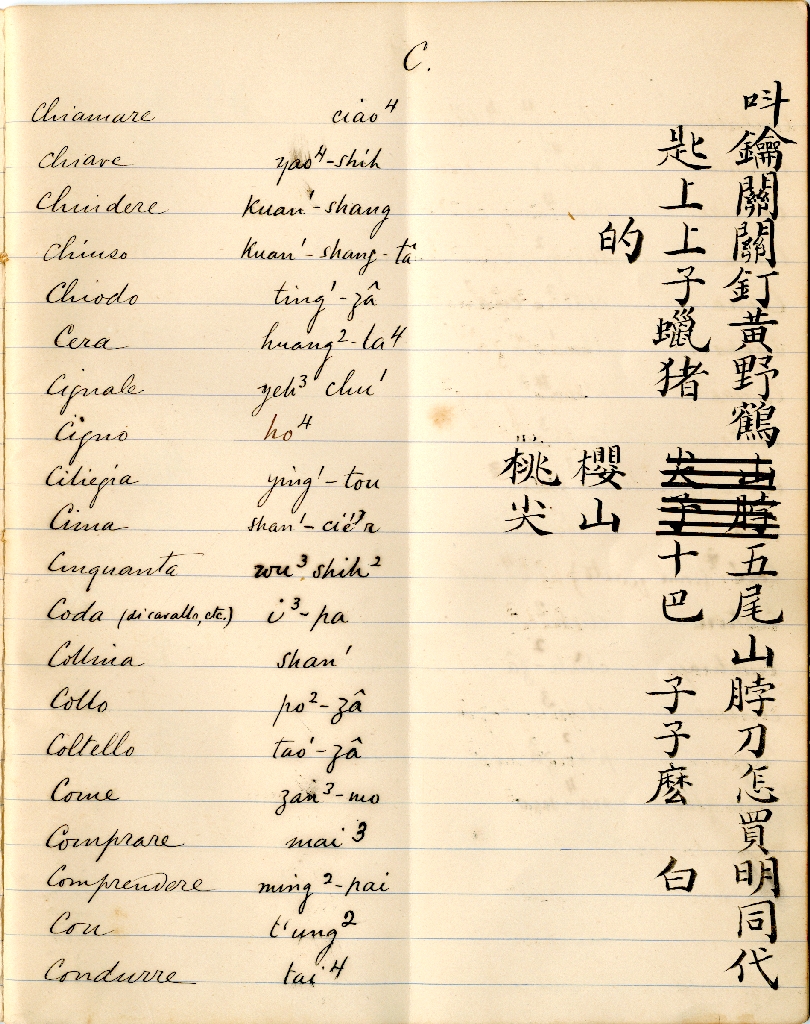 C.
Chiamare ciao⁴ 呌
Chiave yao⁴-shih 鑰匙
Chiudere Kuan¹-shang 關上
Chiuso Kuan¹-shang-tâ 關上的
Chiodo ting¹-zâ 釘子
Cera huang²-la⁴ 黃蠟
Cignale yeh³ chu¹ 野猪
Cigno ho⁴ 鶴
Ciliegia ying¹-tou 櫻桃
Cima shan¹-cié³r 山尖
Cinquanta wu³ shih² 五十
Coda (di cavallo, etc.) i³-pa 尾巴
Collina shan¹ 山
Collo po²-zâ 脖子
Coltello tao¹-zâ 刀子
Come zan³-mo 怎麽
Comprare mai³ 買
Comprendere ming²-pai 明白
Con t'ung² 同
Condurre tai⁴ 代